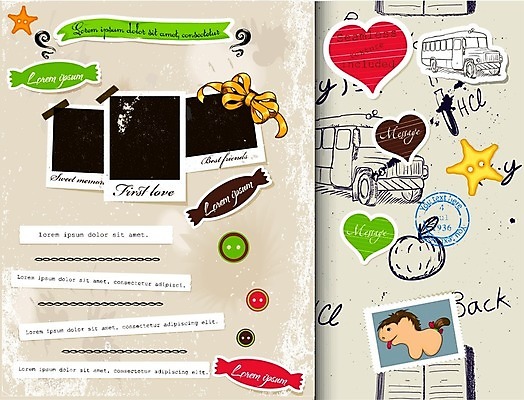 Lorem ipsum dolor sit amet, consectetur
Lorem ipsum
Sweet memories
First love
Best friends
Lorem ipsum
lorem ipsum dolor sit amet.
Lorem ipsum dolor sit amet, consectetur adipisci.
Lorem ipsum dolor sit amet, consectetur adipiscing elit.
Lorem ipsum dolor sit amet, consectetur adipiscing.
Lorem ipsum
Seamless
included
HCl
Message
Your text here
1936
Message
Back